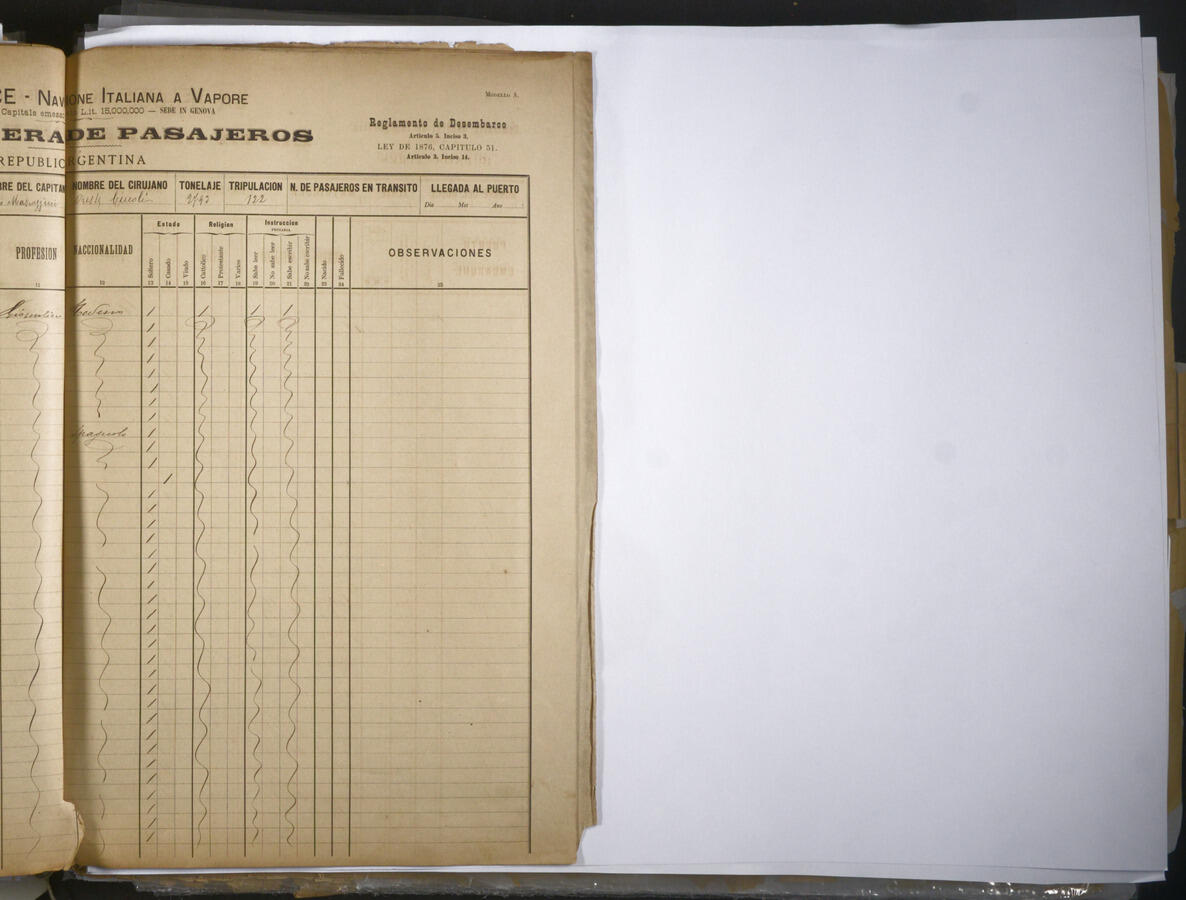 CE - NAV ONE ITALIANA A VAPORE
MODELLO A.
Capitale emess L.it. 15,000,000 — SEDE IN GENOVA
ERA DE PASAJEROS
Reglamento de Desembarco
Articulo 5. Inciso 3.
REPUBLIC RGENTINA
LEY DE 1876, CAPITULO 51.
Articulo 3. Inciso 14.
BRE DEL CAPITAN NOMBRE DEL CIRUJANO TONELAJE TRIPULACION N. DE PASAJEROS EN TRANSITO LLEGADA AL PUERTO
122
Dia Mes Ano
PROFESION NACCIONALIDAD Estado Religion Instruccion PRIMARIA OBSERVACIONES
Soltero Casado Viudo Cattolico Protestante Varios Sabe leer No sabe leer Sabe escribir No sabe escribir Nacido Fallecido
11 12 13 14 15 16 17 18 19 20 21 22 23 24 25